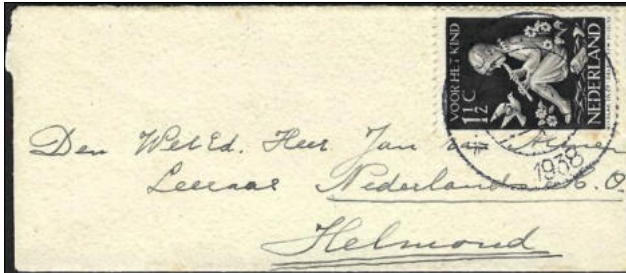 VOOR HET KIND
1½ C
NEDERLAND
1938
Den WelEd. Heer Jan van
Leeraar Nederlands O.
Helmond